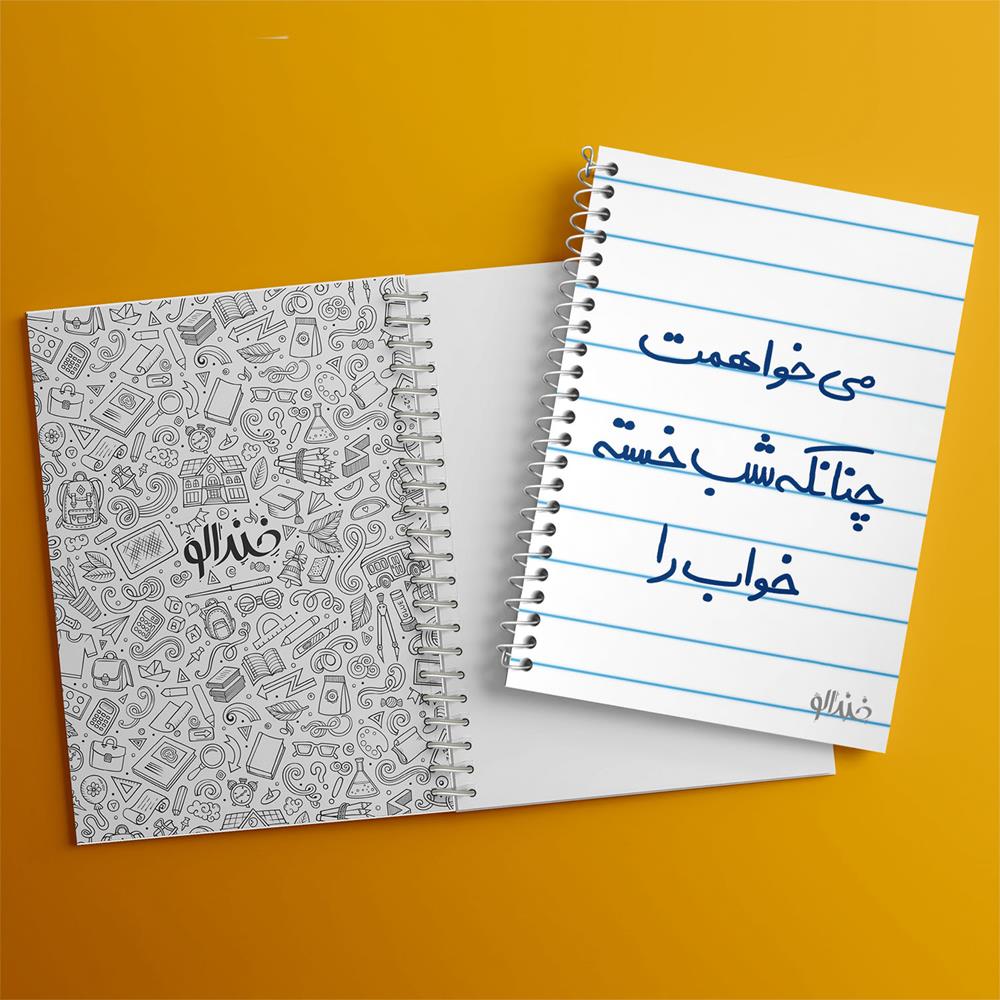 می خواهمت
چنانکه شب خسته
خواب را
خندالو
خندالو